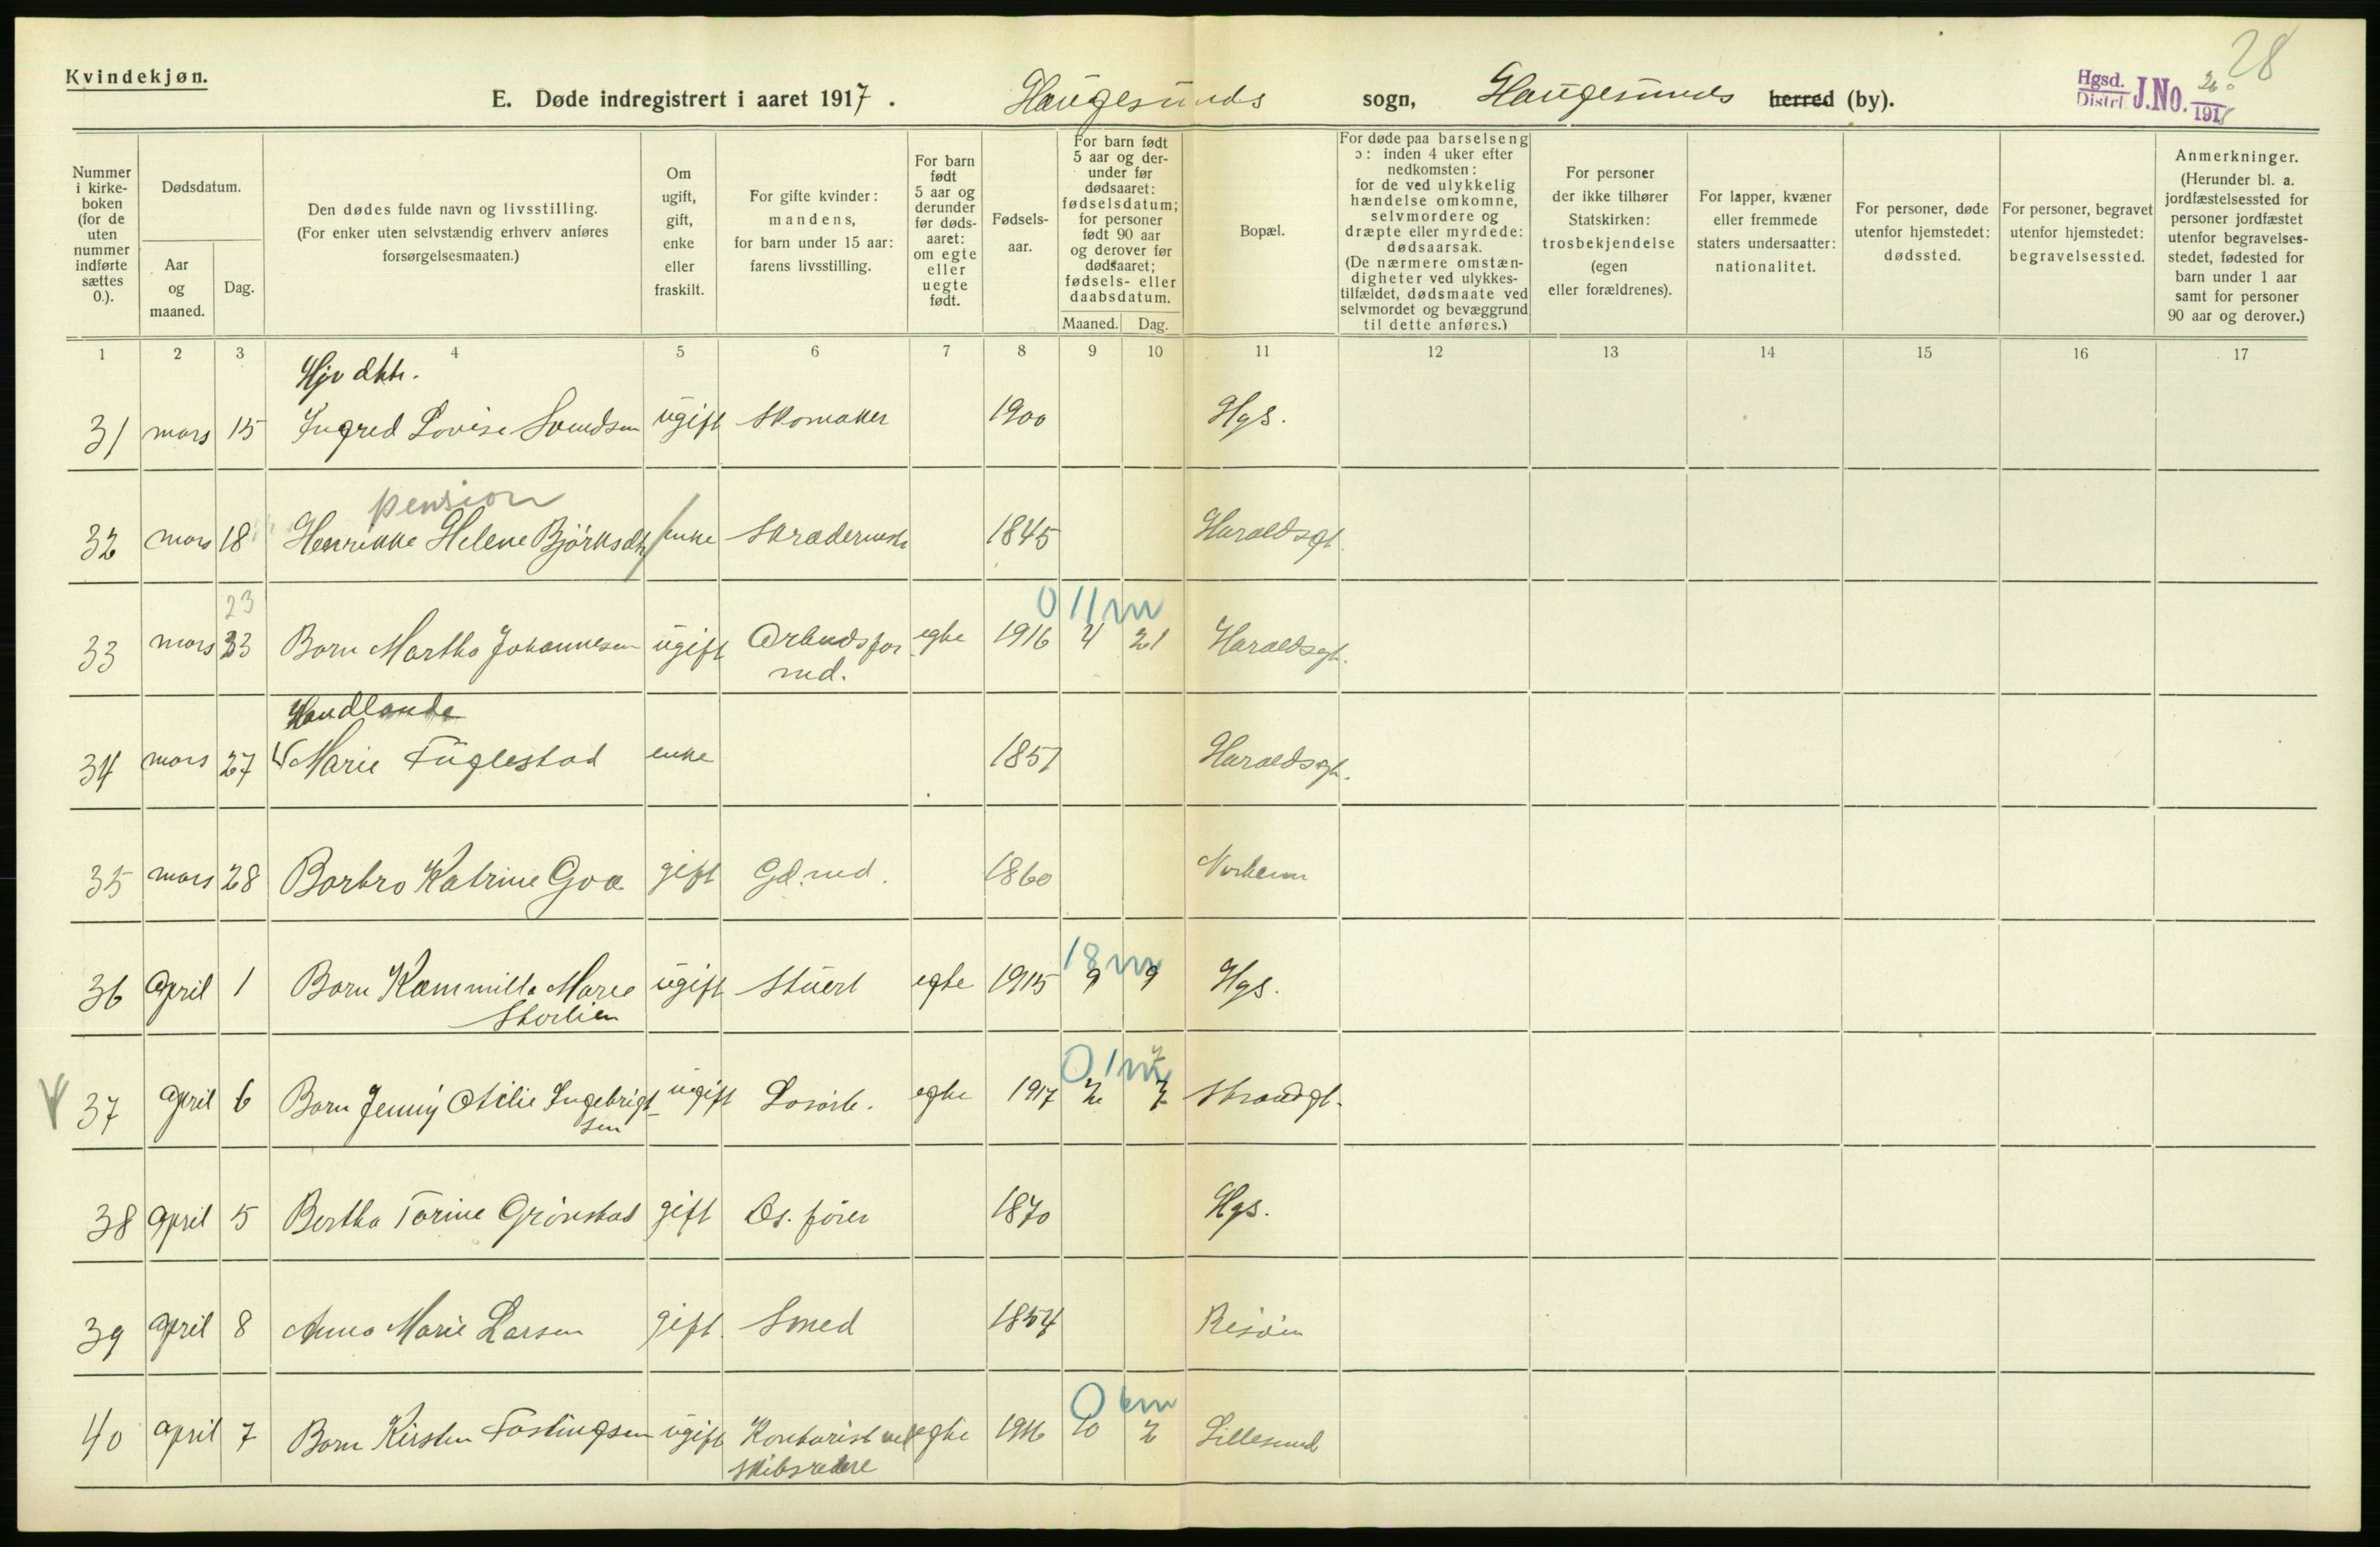 Kvindekjøn.
28
E. Døde indregistrert i aaret 1917. Haugesunds sogn, Haugesunds herred (by).
Hgsd. Distrl. J.No. 1918
Nummer i kirkeboken (for de uten nummer indførte sættes 0.).
Dødsdatum.
Aar og maaned.
Dag.
Den dødes fulde navn og livsstilling. (For enker uten selvstændig erhverv anføres forsørgelsesmaaten.)
Om ugift, gift, enke eller fraskilt.
For gifte kvinder: mandens, for barn under 15 aar: farens livsstilling.
For barn født 5 aar og derunder før dødsaaret: om egte eller uegte født.
Fødselsaar.
For barn født 5 aar og derunder før dødsaaret: fødselsdatum; for personer født 90 aar og derover før dødsaaret; fødsels- eller daabsdatum.
Maaned. Dag.
Bopæl.
For døde paa barselseng ɔ: inden 4 uker efter nedkomsten: for de ved ulykkelig hændelse omkomne, selvmordere og dræpte eller myrdede: dødsaarsak. (De nærmere omstændigheter ved ulykkestilfældet, dødsmaate ved selvmordet og bevæggrund til dette anføres.)
For personer der ikke tilhører Statskirken: trosbekjendelse (egen eller forældrenes).
For lapper, kvæner eller fremmede staters undersaatter: nationalitet.
For personer, døde utenfor hjemstedet: dødssted.
For personer, begravet utenfor hjemstedet: begravelsessted.
Anmerkninger. (Herunder bl. a. jordfæstelsessted for personer jordfæstet utenfor begravelsesstedet, fødested for barn under 1 aar samt for personer 90 aar og derover.)
1 2 3 4 5 6 7 8 9 10 11 12 13 14 15 16 17
Hjv dktr.
31 mars 15 Ingred Lovise Svendsen ugift Skomaker 1900 Hgs.
pension
32 mars 18 Henrikke Helene enke 1845 Haraldsgt.
23 0 11 m
33 mars 23 Barn Martha Johannesen ugift Arbeidsfor egte 1916 4 21 Haraldsgt.
md.
Handlande
34 mars 27 Marie Fuglestad enke 1851 Haraldsgt.
35 mars 28 Barbro Katrine Goa gift Gd.md. 1860
18 m
36 April 1 Barn Kammilla Marie ugift Stuert egte 1915 9 9 Hgs.
Storlien
0 1 m
37 April 6 Barn Jenny Otilie Ingebrigt ugift egte 1917 2 7 Strandgt.
sen
38 April 5 Bertha Torine Grønstad gift Ds. fører 1870 Hgs.
39 April 8 Anna Marie Larsen gift Smed 1854 Risøen
0 6 m
40 April 7 Barn Kirsten Fastingsen ugift Kontorist ved egte 1916 10 2 Lillesund
skibsredere